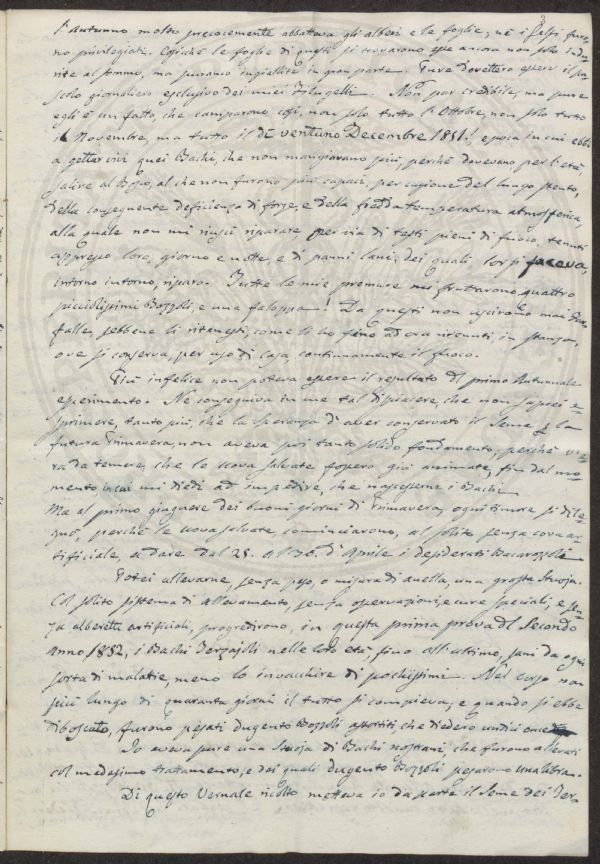 3
l'autunno molto precocemente abbatteva gli alberi e le foglie; nè i Gelsi furo=
no privilegiati. Cosiché le foglie di questi si trovarono esse ancora non solo indu=
rite al sommo, ma puranco ingiallite in gran parte. Pure dovettero essere il pa=
scolo giornaliero esclusivo dei miei Filugelli. Non par credibile, ma pure
egli è un fatto, che camparono così, non solo tutto l'Ottobre, non solo tutto
il Novembre, ma tutto il dì ventuno Decembre 1851., epoca in cui ebbi
a gettar vivi quei Bachi, che non mangiavano più, perchè dovevano per l'età
salire al Bosco, al che non furono più capaci, per cagione del lungo stento,
della conseguente deficienza di forze, e della fredda temperatura atmosferica,
alla quale non mi riuscì riparare per via di testi pieni di fuoco, tenuti
appresso loro, giorno e notte, e di panni lani, dei quali lor si faceva,
intorno intorno, riparo. Tutte le mie premure mi fruttarono quattro
picciolissimi Bozzoli, e una faloppa! Da questi non uscirono mai Far=
falle, sebbene li ritenessi, come li ho fino ad ora ritenuti, in stanza,
ove si conserva, per uso di casa, continuamente il fuoco.
Più infelice non poteva essere il resultato del primo Autunnale
esperimento. Ne conseguiva in me tal dispiacere, che non saprei e=
sprimere, tanto più, che la speranza di aver conservato il Seme per la
futura Primavera, non aveva poi tanto solido fondamento; perchè v'e=
ra da temere, che le uova salvate fossero già animate, fin dal mo=
mento in cui mi diedi ad impedire, che nascessero i Bachi.
Ma al primo giugnere dei buoni giorni di Primavera, ogni timore si dile=
guò, perchè le uova salvate, cominciarono, al solito senza cova ar=
tificiale, a dare dal 25. al 26. di Aprile i desiderati Bacarozzoli.
Potei allevarne, senza peso, o misura di quella, una grossa Stuoja.
Col solito sistema di allevamento, senza operazioni, e cure speciali, e sen=
za alberetti artificiali, progredirono, in questa prima prova del Secondo
Anno 1852, i Bachi Terzajoli nelle loro età, fino all'ultimo, sani da ogni
sorta di malatie, meno lo invacchire di pochissimi. Nel corso non
più lungo di quaranta giorni il tutto si compieva; e quando si ebbe
disboscato, furono pesati dugento Bozzoli assortiti che diedero undici once.
Io aveva pure una Stuoja di Bachi nostrani, che furono allevati
col medesimo trattamento, e dai quali dugento Bozzoli pesarono una libra.
Di questo Vernale ricolto metteva io da parte il Seme dei Ter=